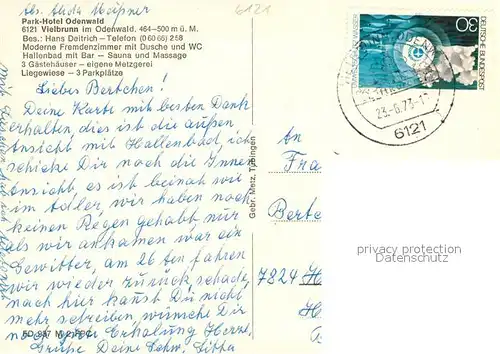 Abs. Aloda Meißner
6121
Park-Hotel Odenwald
6121 Vielbrunn im Odenwald, 464-500 m ü. M.
Bes.: Hans Deitrich – Telefon (0 60 66) 2 58
Moderne Fremdenzimmer mit Dusche und WC
Hallenbad mit Bar – Sauna und Massage
3 Gästehäuser – eigene Metzgerei
Liegewiese – 3 Parkplätze
Liebes Bertchen!
Deine Karte mit besten Dank
erhalten, dies ist die außen
Ansicht mit Hallenbad, ich
schicke Dir noch die Innen
Ansicht, es ist beinah wie
im Adler, wir haben noch
keinen Regen gehabt nur
als wir ankamen war ein
Gewitter, am 26 ten fahren
wir wieder zurück, schade,
nach hier kannst Du nicht
mehr schreiben, wünsche Dir
Erholung Herzl.
Grüße Deine
Gebr. Metz, Tübingen
DEUTSCHE BUNDESPOST
30
23.-6.73-1
6121
An
Fra
Berte
7824 H
privacy protection
DAMALS.COM